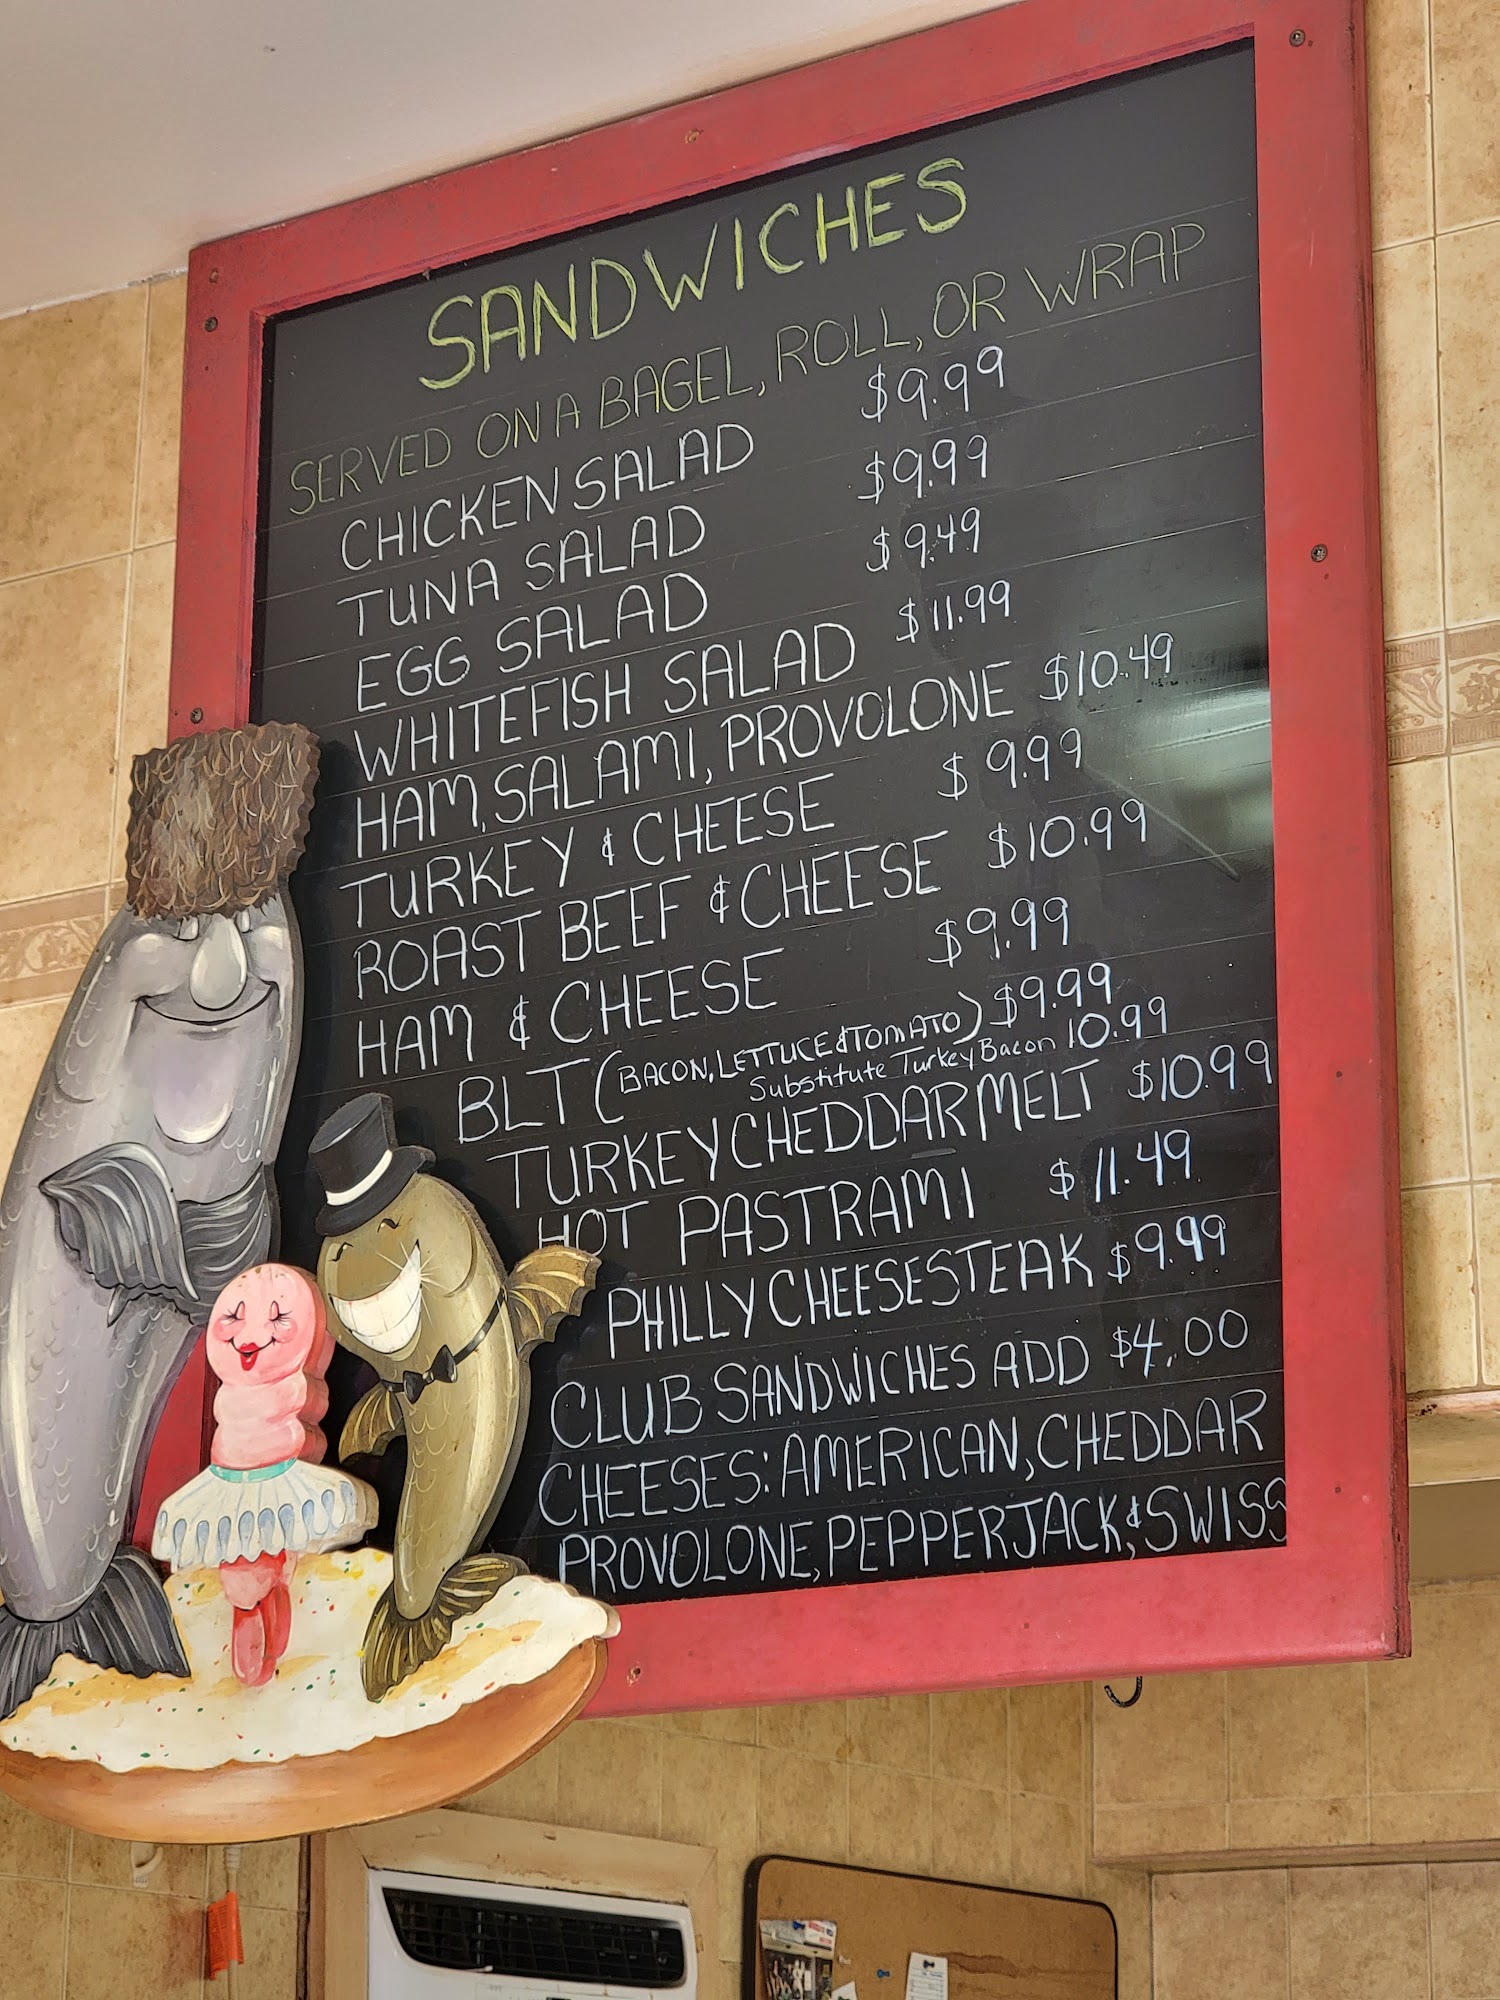 SANDWICHES
SERVED ON A BAGEL, ROLL, OR WRAP
CHICKEN SALAD $9.99
TUNA SALAD $9.99
EGG SALAD $9.49
WHITEFISH SALAD $11.99
HAM, SALAMI, PROVOLONE $10.49
TURKEY & CHEESE $9.99
ROAST BEEF & CHEESE $10.99
HAM & CHEESE $9.99
BLT (BACON, LETTUCE & TOMATO) $9.99
Substitute Turkey Bacon 10.99
TURKEY CHEDDAR MELT $10.99
HOT PASTRAMI $11.49
PHILLY CHEESESTEAK $9.99
CLUB SANDWICHES ADD $4.00
CHEESES: AMERICAN, CHEDDAR
PROVOLONE, PEPPERJACK, & SWISS